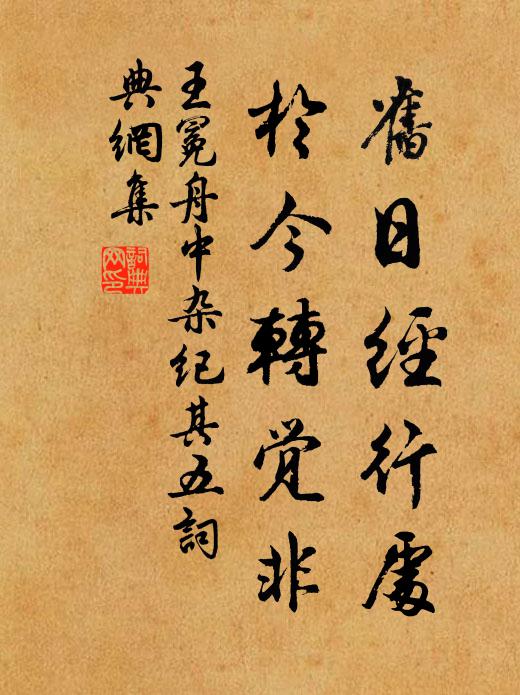 舊日經行處
於今轉覺非
王冕舟中杂纪其五詞
典網集
詞典
网印